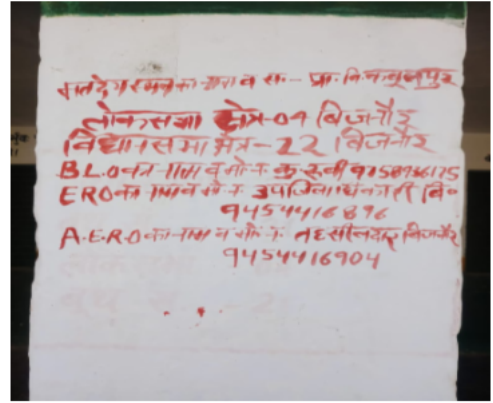 मतदेय स्थल का नाम व सं०- प्रा. वि.
लोकसभा क्षेत्र-04 बिजनौर
विधानसभा क्षेत्र-22 बिजनौर
B.L.O का नाम व मो० न० कु० रूबी
ERO का नाम व मो० न० उपजिलाधिकारी बि०
9454416896
A.E.R.O का नाम व मो० न० तहसीलदार बिजनौर
9454416904